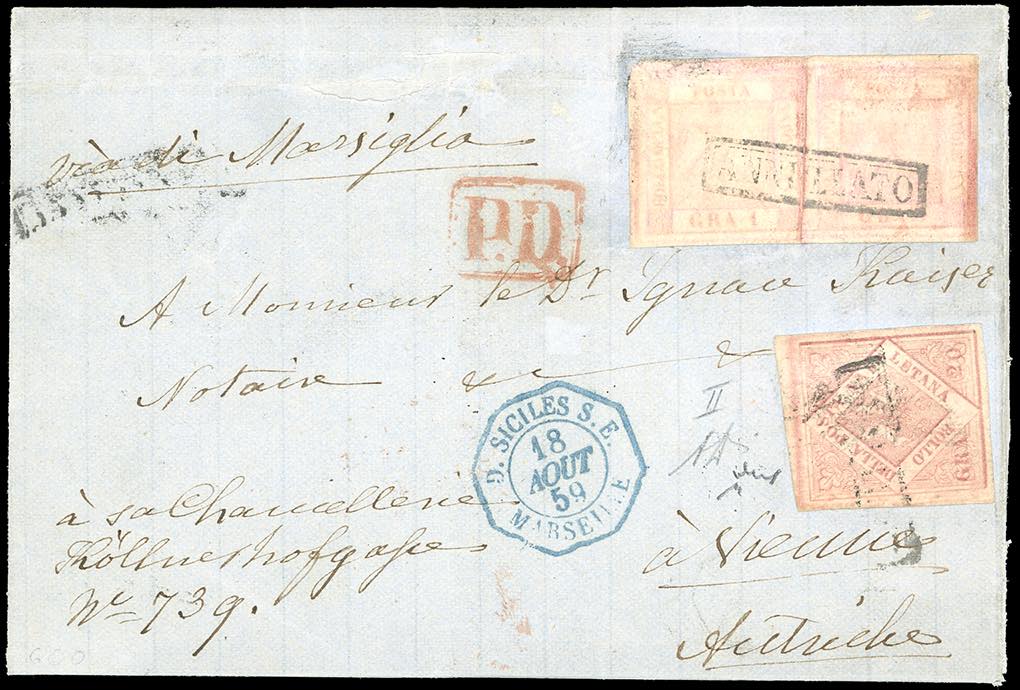 via di Marsiglia
POSTA
POSTA
GRA 1
ANNULLATO
P.D.
A Monsieur le Dr Ignace Kaiser
Notaire
II
LETANA
20
BOLLO
GRA
DELLA POSTA
D. SICILES S.E.
18
AOUT
59
MARSEILLE
à sa Chancellerie
à Vienne
Köllnerhofgasse
No 739.
Autriche
600